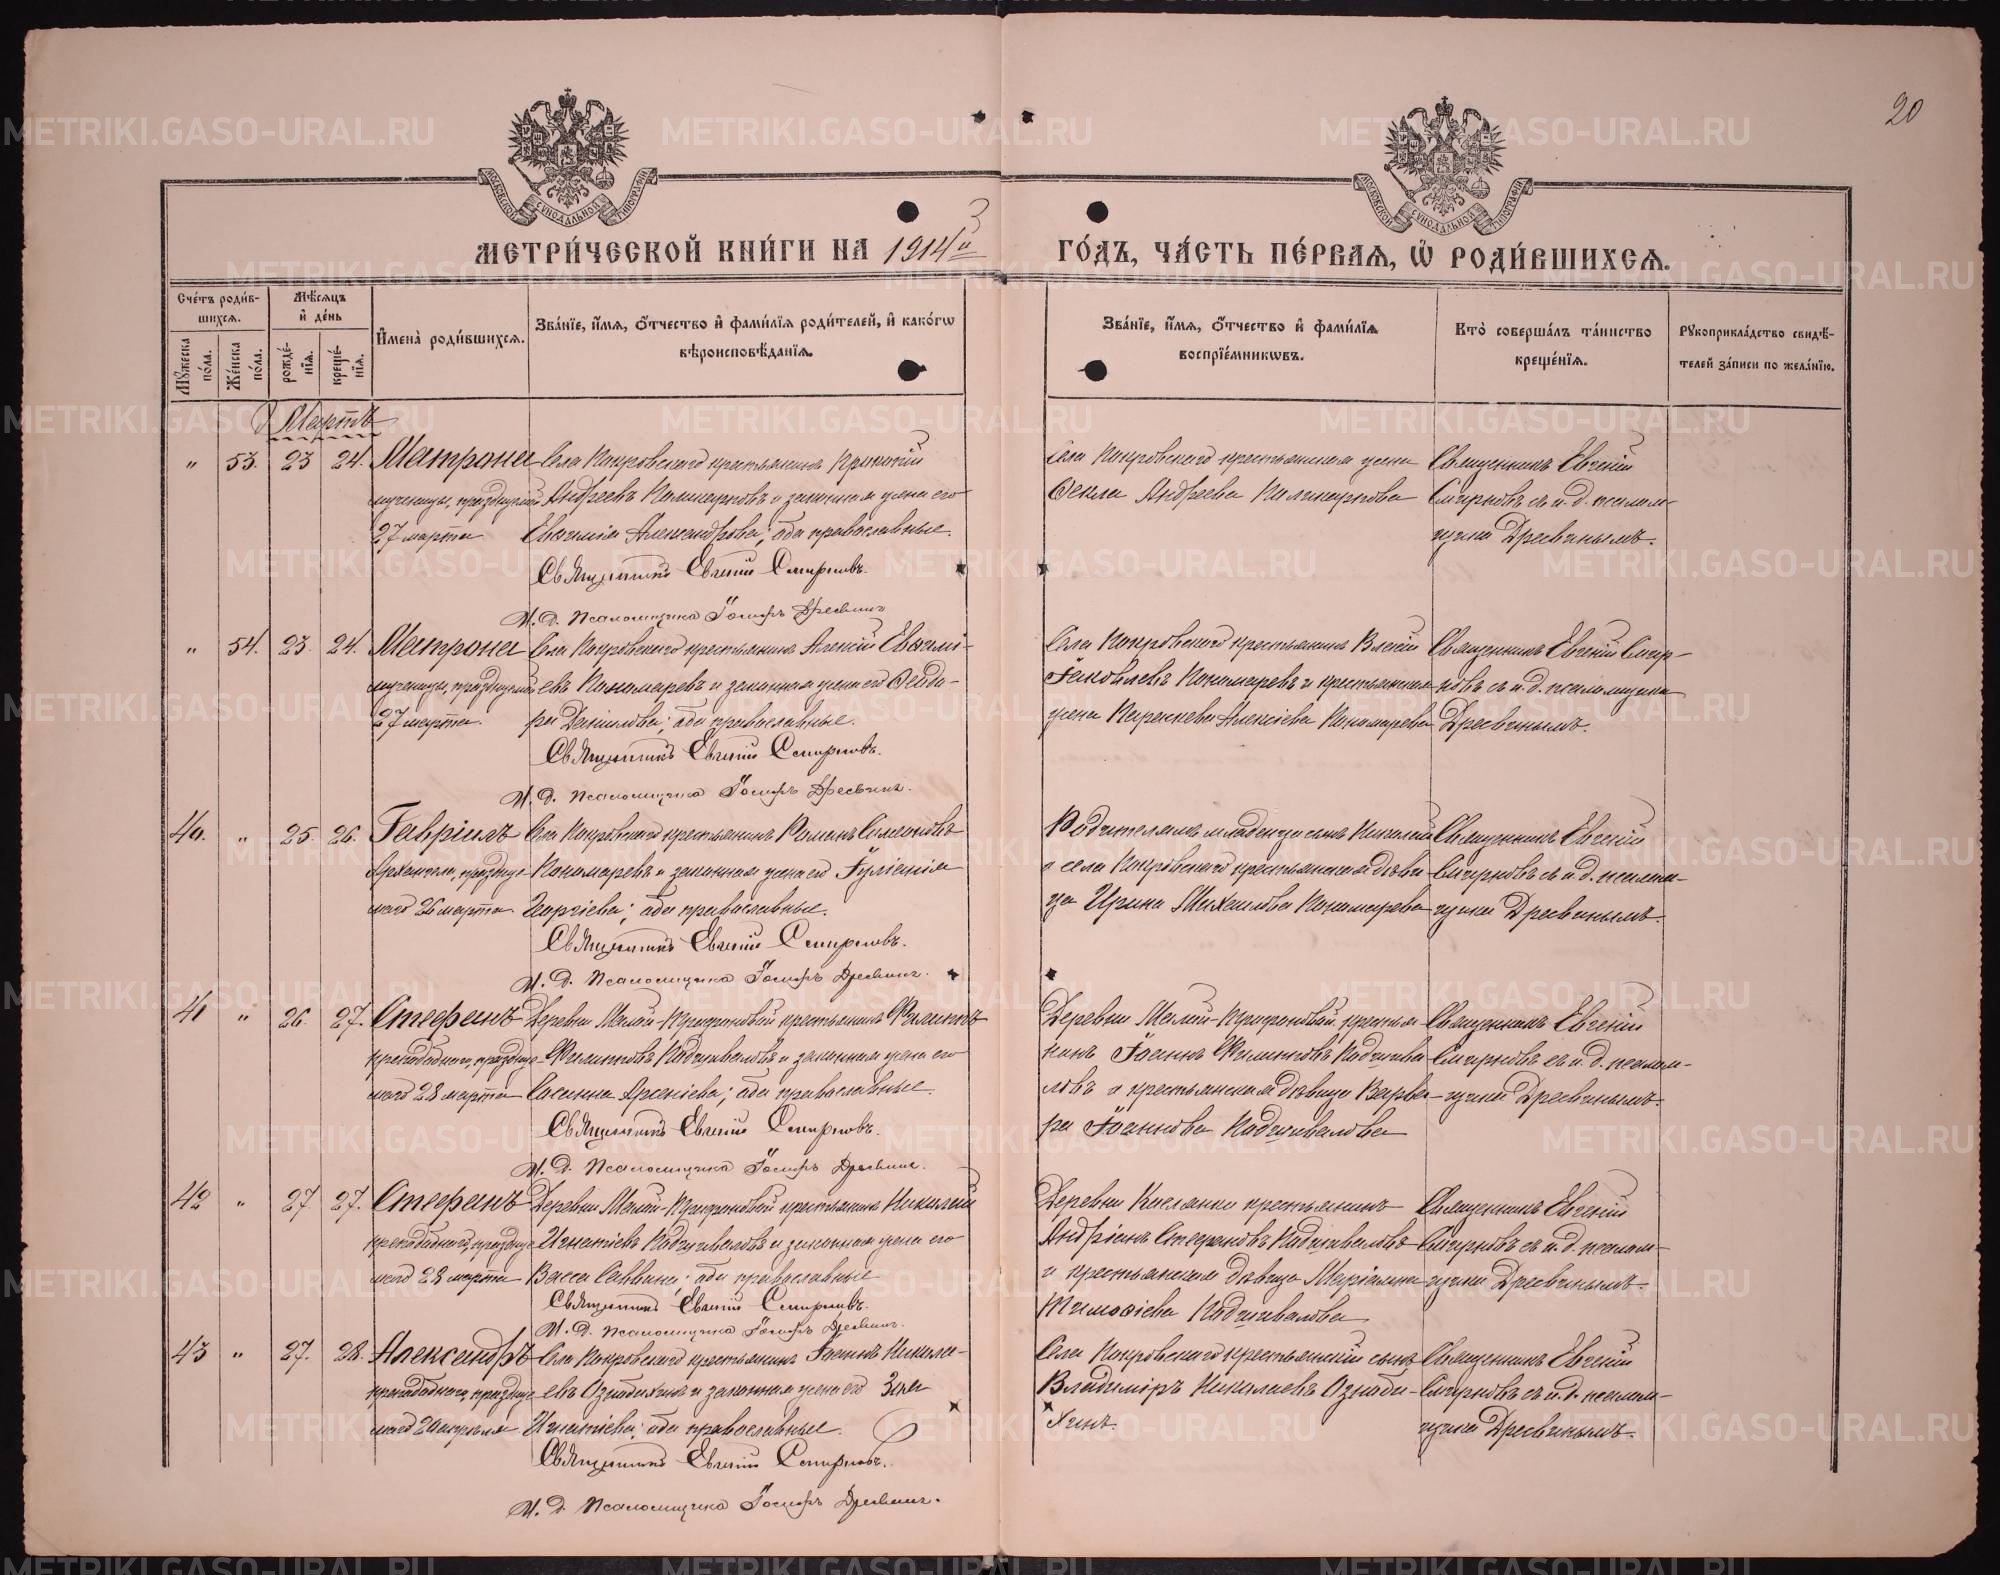 20
МЕТРИ́ЧЕСКОЙ КНИ́ГИ НА 1914й ГО́ДЪ, ЧА́СТЬ ПЕ́РВАЯ, Ѡ҆ РОДИ́ВШИХСЯ.
Сче́тъ роди́в-
шихся.
Мѣ́сяцъ
и҆ де́нь
Му́жеска по́ла.
Же́нска по́ла.
рожде́нїя.
креще́нїя.
И҆мена̀ роди́вшихся.
Зва́нїе, и҆́мя, ѻ҆́тчество и҆ фами́лїя роди́телей, и҆ како́гѡ
вѣроисповѣ́данїя.
Зва́нїе, и҆́мя, ѻ҆́тчество и҆ фами́лїя
воспрїе́мникѡвъ.
Кто̀ соверша́лъ та́инство
креще́нїя.
Рꙋкоприкла́дство свидѣ́-
телей за́писи по жела́нїю.
Мартъ
" 53. 23 24. Матрона
мученицы, празднуемой
27 марта
Села Покровскаго крестьянинъ
Андреевъ и законная жена его
Евѳимія Александрова; оба православные.
Священникъ Евгеній Смирновъ.
И. д. Псаломщика Іосифъ Дресвинъ
Села Покровскаго крестьянская жена
Ѳекла Андреева
Священникъ Евгеній
Смирновъ съ и. д. псалом-
щика Дресвинымъ.
" 54. 23. 24. Матрона
мученицы, празднуемой
27 марта.
Села Покровскаго крестьянинъ Алексій Евѳимі-
евъ Пономаревъ и законная жена его Ѳеодо-
ра Данилова; оба православные.
Священникъ Евгеній Смирновъ.
И. д. Псаломщика Іосифъ Дресвинъ.
Села Покровскаго крестьянинъ
Іаковлевъ Пономаревъ и крестьянская
жена Алексіева Пономарева
Священникъ Евгеній Смир-
новъ съ и. д. псаломщика
Дресвинымъ.
40. " 25. 26. Гавріилъ
Архангела, празднуе-
маго 26 марта.
Села Покровскаго крестьянинъ Романъ Симоновъ
Пономаревъ и законная жена его Іуліанія
Георгіева; оба православные.
Священникъ Евгеній Смирновъ.
И. д. Псаломщика Іосифъ Дресвинъ.
Родителямъ младенца сынъ Николай
и села Покровскаго крестьянская дѣви-
ца Ирина Михаилова Пономарева
Священникъ Евгеній
Смирновъ съ и. д. псалом-
щика Дресвинымъ.
41 " 26. 27. Стефанъ
преподобнаго, празднуе-
маго 28 марта
Деревни Малой-Трифоновой крестьянинъ Филиппъ
Филипповъ Подшиваловъ и законная жена его
Арсеніева; оба православные.
Священникъ Евгеній Смирновъ.
И. д. Псаломщика Іосифъ Дресвинъ.
Деревни Малой-Трифоновой крестья-
нинъ Іоаннъ Филипповъ Подшива-
ловъ и крестьянская дѣвица Варва-
ра Іоаннова Подшивалова
Священникъ Евгеній
Смирновъ съ и. д. псалом-
щика Дресвинымъ.
42 " 27. 27. Стефанъ
преподобнаго, празднуе-
маго 28 марта
Деревни Малой-Трифоновой крестьянинъ Николай
Игнатіевъ Подшиваловъ и законная жена его
Васса Саввина; оба православные
Священникъ Евгеній Смирновъ.
И. д. Псаломщика Іосифъ Дресвинъ.
Деревни крестьянинъ
Андріанъ Стефановъ Подшиваловъ
и крестьянская дѣвица Маріамна
Тимоѳіева Подшивалова
Священникъ Евгеній
Смирновъ съ и. д. псалом-
щика Дресвинымъ.
43 " 27. 28. Александръ
преподобнаго, празднуе-
маго апрѣля
Села Покровскаго крестьянинъ Іоаннъ Никола-
евъ Ознобихинъ и законная жена его
Игнатіева; оба православные.
Священникъ Евгеній Смирновъ.
И. д. Псаломщика Іосифъ Дресвинъ.
Села Покровскаго крестьянскій сынъ
Владиміръ Николаевъ Ознoби-
хинъ.
Священникъ Евгеній
Смирновъ съ и. д. псалом-
щика Дресвинымъ.
METRIKI.GASO-URAL.RU